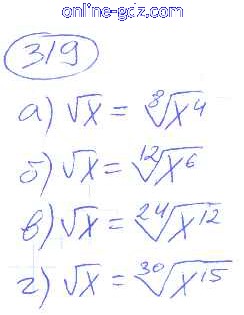 online-gdz.com
319
а) √x = ⁸√x⁴
б) √x = ¹²√x⁶
в) √x = ²⁴√x¹²
г) √x = ³⁰√x¹⁵